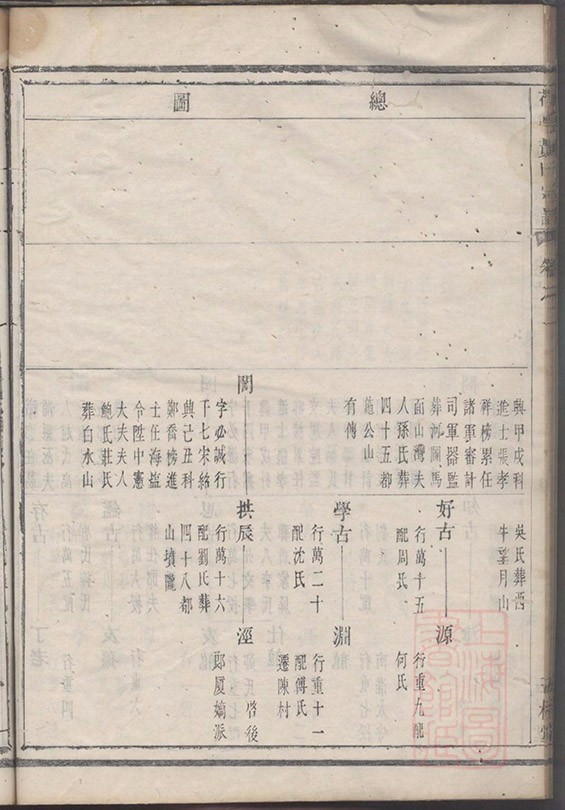 總圖
興甲戌科
進士張孝
祥榜累任
諸軍審計
司軍器監
葬
面山灣夫
人孫氏葬
四十五都
施公山
有傳
吳氏葬
牛望月山
好古
行萬十五
配周氏
源
行重九配
何氏
學古
行萬二十
配沈氏
淵
行重十一
配傅氏
遷陳村
閎
字必誠行
千七宋紹
興己丑科
鄭喬榜進
士任海鹽
令陞中憲
大夫夫人
鮑氏莊氏
葬白水山
拱辰
行萬十六
配劉氏葬
四十八都
山墳隴
涇
啓後
郎厦嫡派